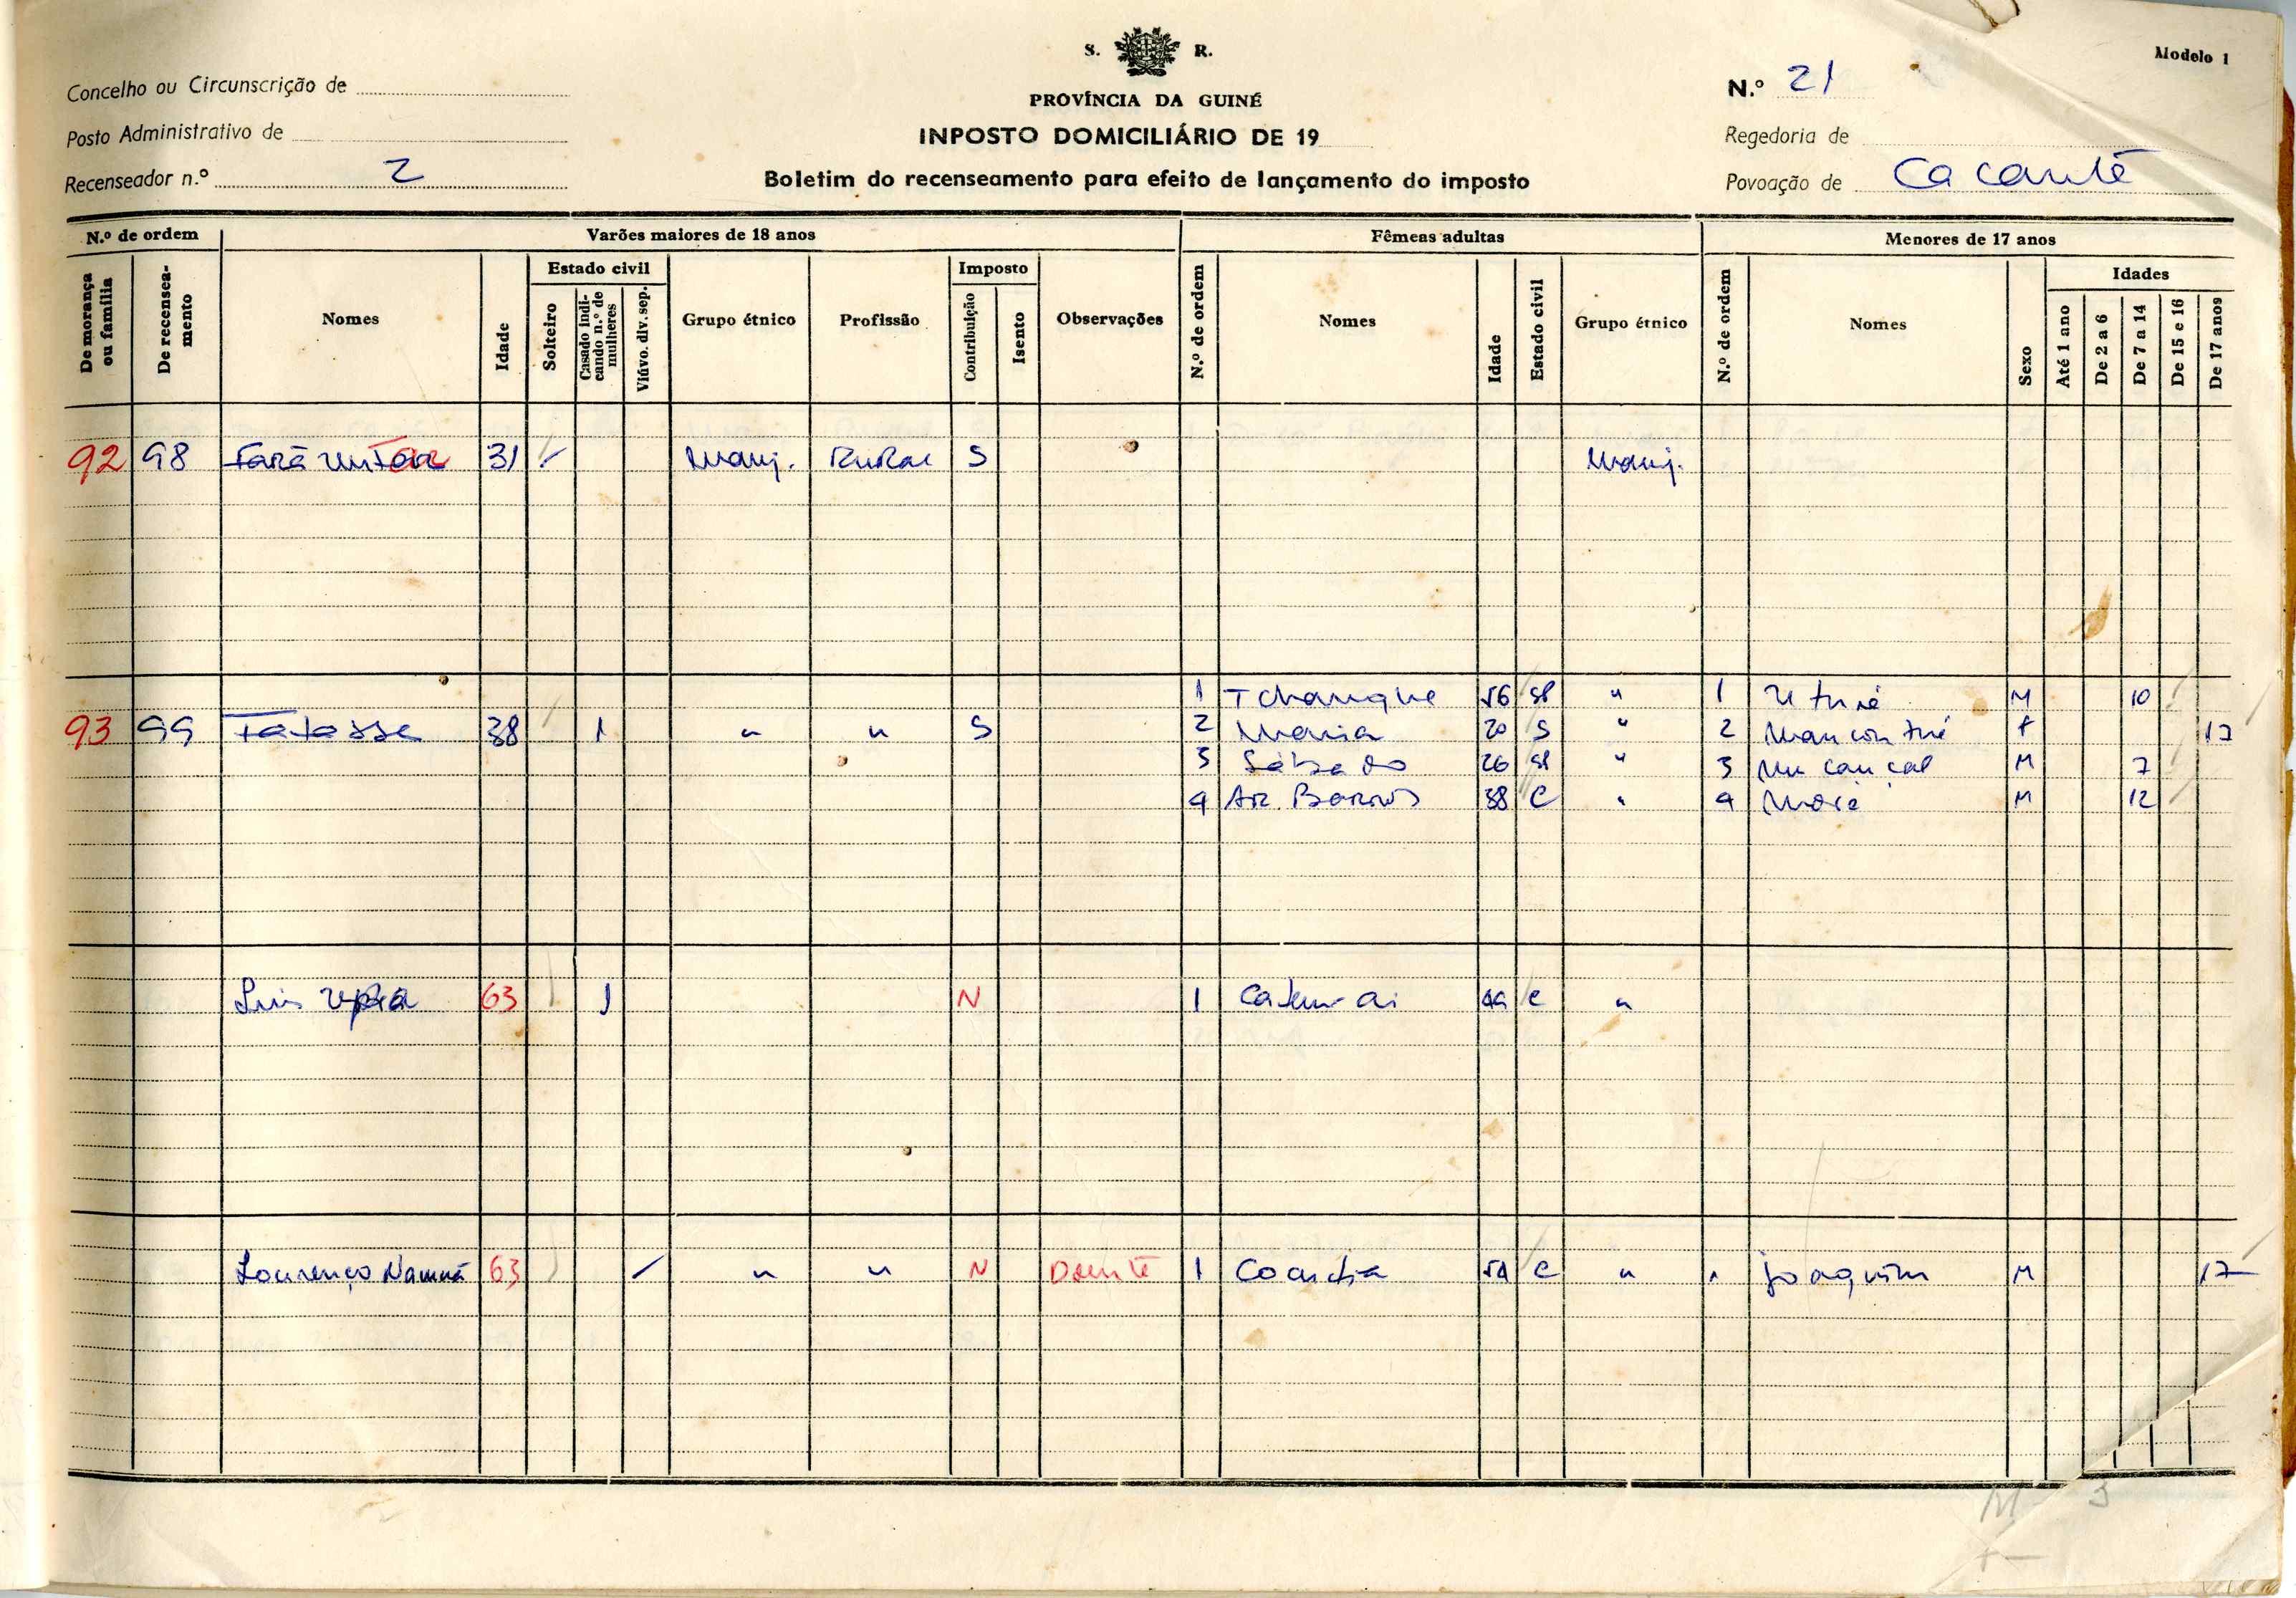 Modelo 1
S. R.
Concelho ou Circunscrição de
PROVÍNCIA DA GUINÉ
N.º 21
Posto Administrativo de
INPOSTO DOMICILIÁRIO DE 19
Regedoria de
Recenseador n.º 2
Boletim do recenseamento para efeito de lançamento do imposto
Povoação de Cacantê
N.º de ordem Varões maiores de 18 anos Fêmeas adultas Menores de 17 anos
De morança ou família
De recensea-mento
Nomes
Idade
Estado civil
Solteiro
Casado indi-cando n.º de mulheres
Viúvo. div. sep.
Grupo étnico
Profissão
Imposto
Contribuição
Isento
Observações
N.º de ordem
Nomes
Idade
Estado civil
Grupo étnico
N.º de ordem
Nomes
Sexo
Idades
Até 1 ano
De 2 a 6
De 7 a 14
De 15 e 16
De 17 anos
92 98 Farã 31 Manj. Rural S Manj.
1 Tchangue 56 " 1 M 10
93 99 Fatasse 38 1 " " S 2 Maria 20 S " 2 F 17
3 Sabado 26 " 3 M 7
4 Barros 38 C " 4 M 12
Luis 63 1 N 1 C "
Lourenço Namná 63 " " N Doente 1 C " " Joaquim M 17